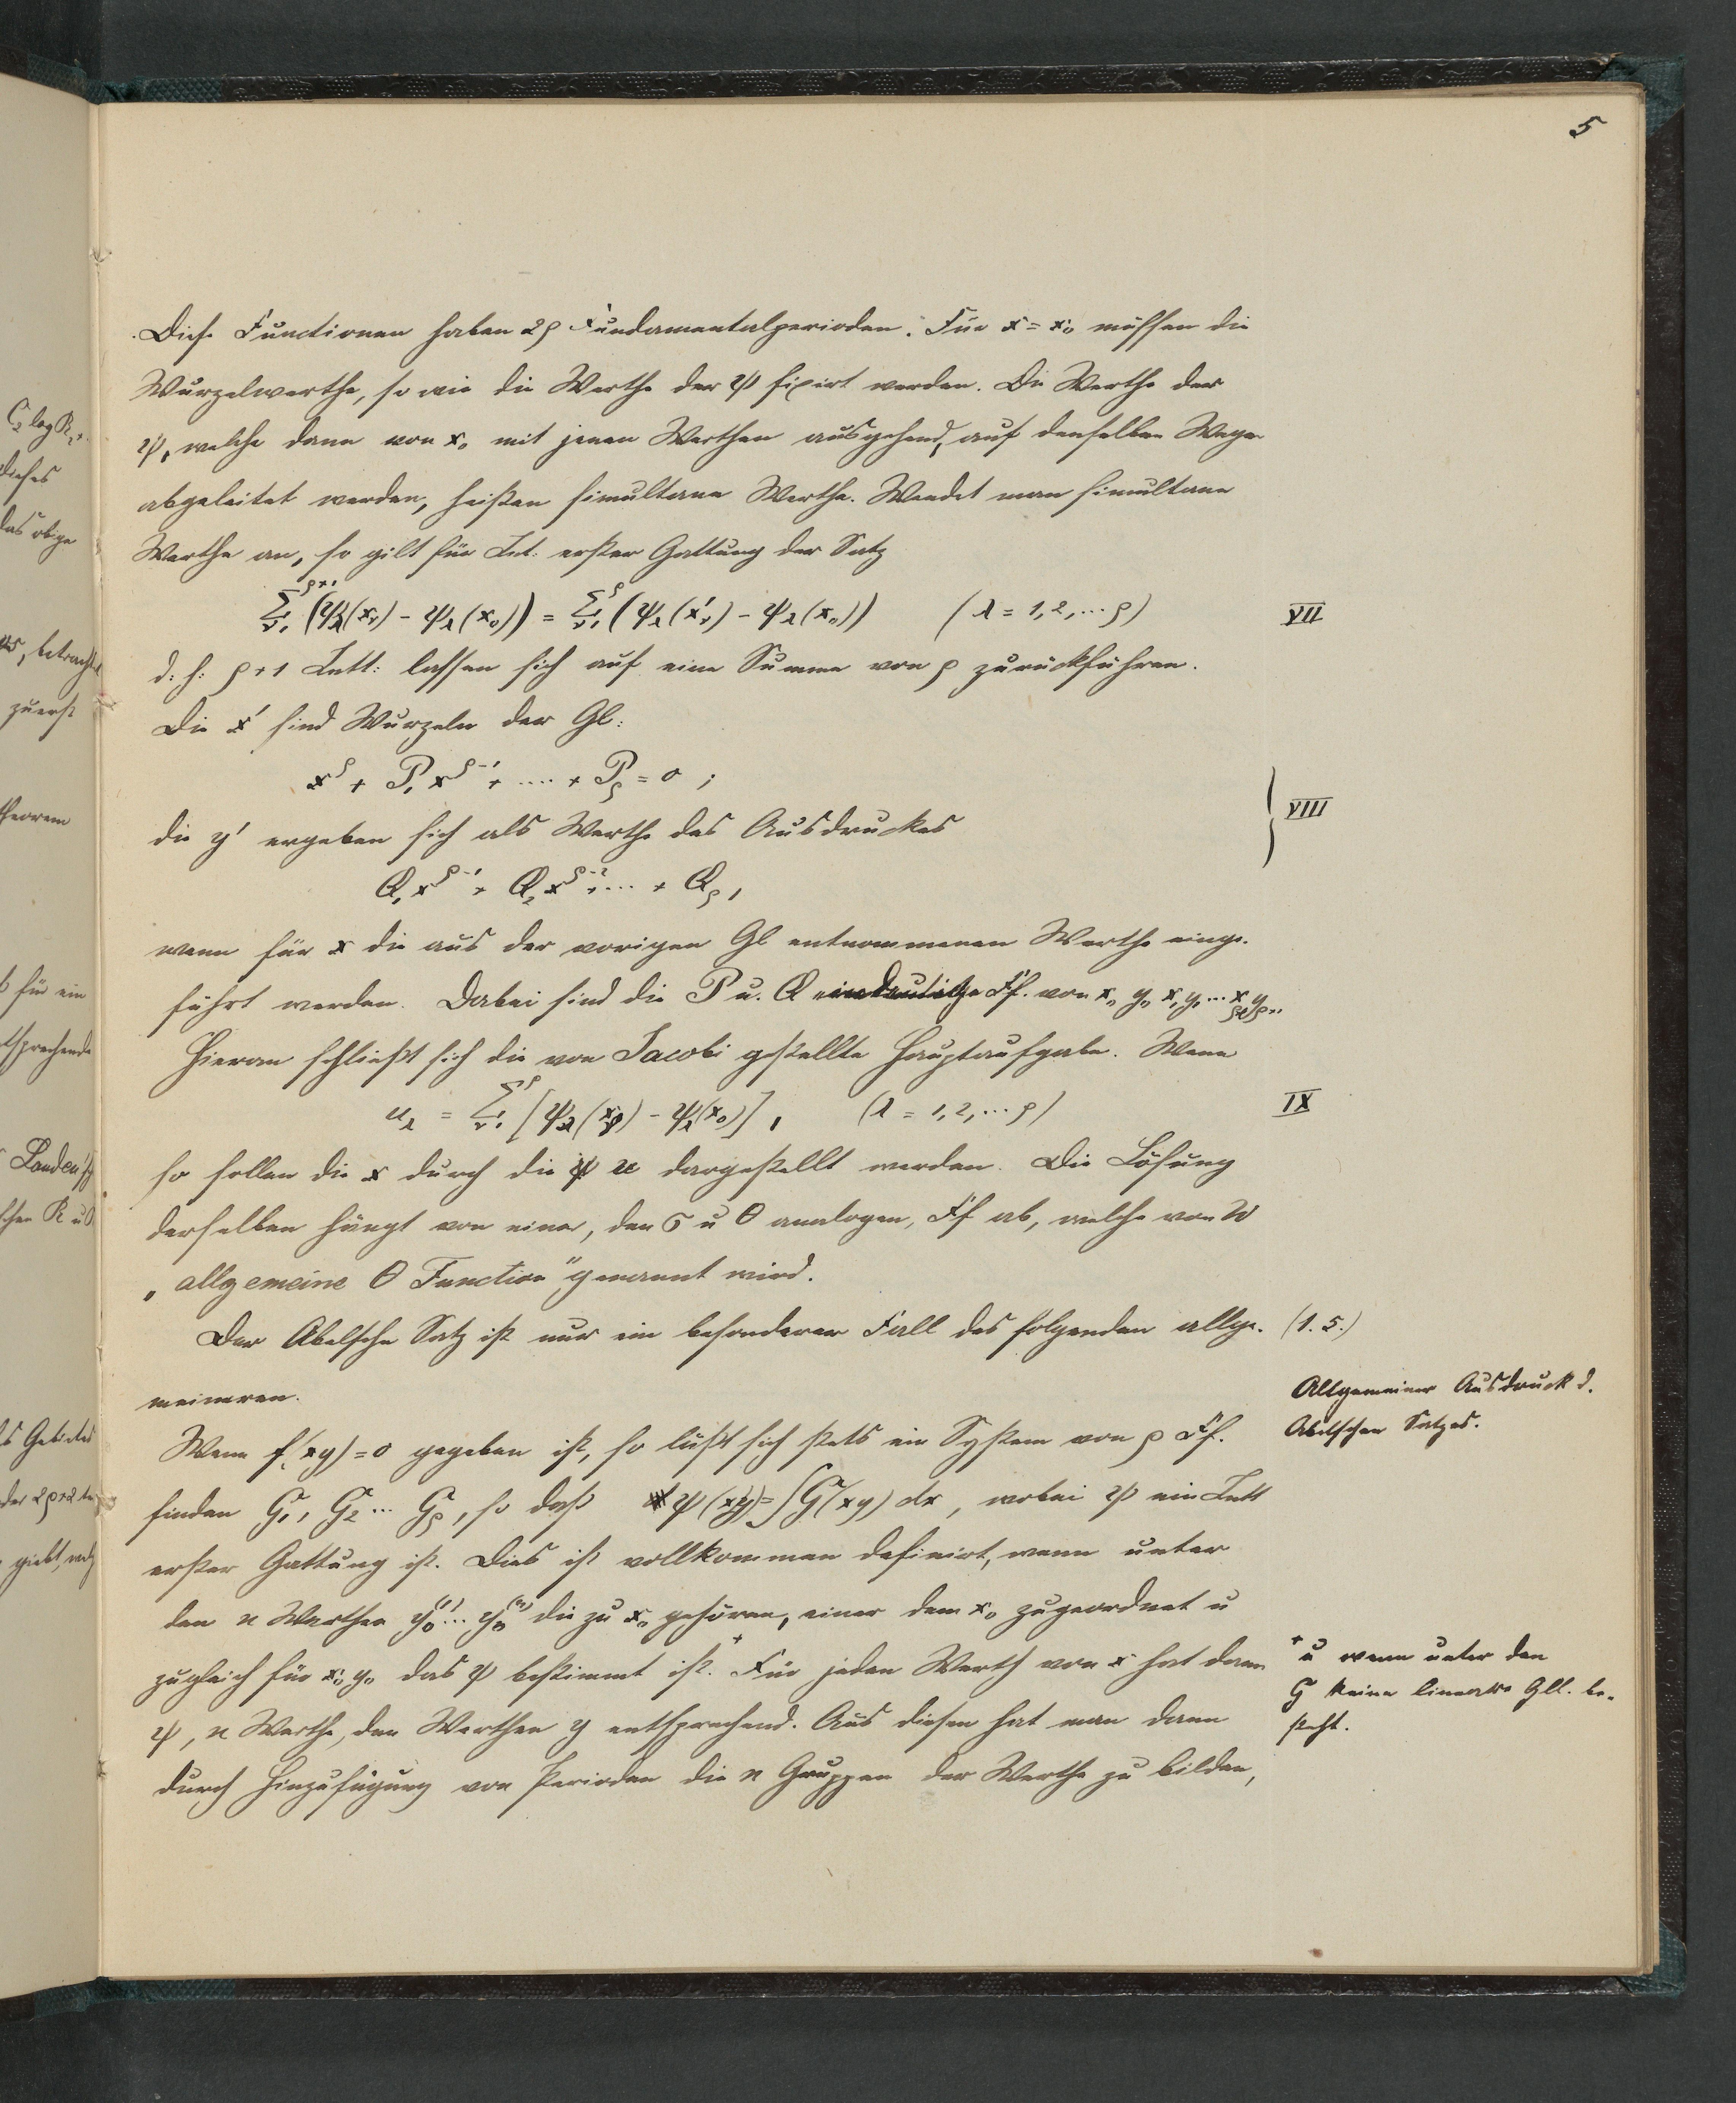 5
Diese Functionen haben 2ρ Fundamentalperioden. Für x = x₀ müssen die
Wurzelwerthe, so wie die Werthe der ψ fixirt werden. Die Werthe der
ψ, welche dann von x₀ mit jenen Werthen ausgehend, auf denselben Wege
abgeleitet werden, heißen simultane Werthe. Wendet man simultane
Werthe an, so gilt für Int. erster Gattung der Satz
Σ_{ν,}^{ρ+1} (ψ_λ(x_ν) − ψ_λ(x₀)) = Σ_{ν,}^{ρ} (ψ_λ(x'_ν) − ψ_λ(x₀)) (λ = 1,2,...ρ) VII
d. h. ρ+1 Intt: lassen sich auf eine Summe von ρ zurückführen.
Die x' sind Wurzeln der Gl:
x^ρ + P₁x^{ρ−1} + .... + P_ρ = 0 ;
VIII
die y' ergeben sich als Werthe des Ausdruckes
Q₁x^{ρ−1} + Q₂x^{ρ−2} + ... + Q_ρ,
wenn für x die aus der vorigen Gl entnommenen Werthe einge-
führt werden. Dabei sind die P u. Q eindeutige Ff. von x₀ y₀ x₁ y₁ ... x_{ρ+1} y_{ρ+1}
Hieran schließt sich die von Jacobi gestellte Hauptaufgabe. Wenn
u_λ = Σ_{ν,}^{ρ} [ψ_λ(x_ν) − ψ_λ(x₀)], (λ = 1,2,...ρ) IX
so sollen die x durch die u dargestellt werden. Die Lösung
derselben hängt von einer, den σ u Θ analogen, Ff ab, welche von W
„allgemeine Θ Function" genannt wird.
Der Abelsche Satz ist nur ein besonderer Fall des folgenden allge- (1. 5.)
meineren.
Allgemeiner Ausdruck d.
Abelschen Satzes.
Wenn f(xy) = 0 gegeben ist, so läßt sich stets ein System von ρ Ff.
finden G₁, G₂ ... G_ρ, so daß ψ(xy) = ∫G(xy) dx, wobei ψ ein Intt
erster Gattung ist. Dies ist vollkommen definirt, wenn unter
den n Werthen y₀^{(1)} ... y₀^{(n)} die zu x₀ gehören, einer dem x₀ zugeordnet u
zugleich für x₀ y₀ das ψ bestimmt ist.⁺ Für jeden Werth von x hat dann
ψ, n Werthe, den Werthen y entsprechend. Aus diesen hat man dann
durch Hinzufügung von Perioden die n Gruppen der Werthe zu bilden,
⁺ u wenn unter den
G keine lineare Gll. be-
steht.